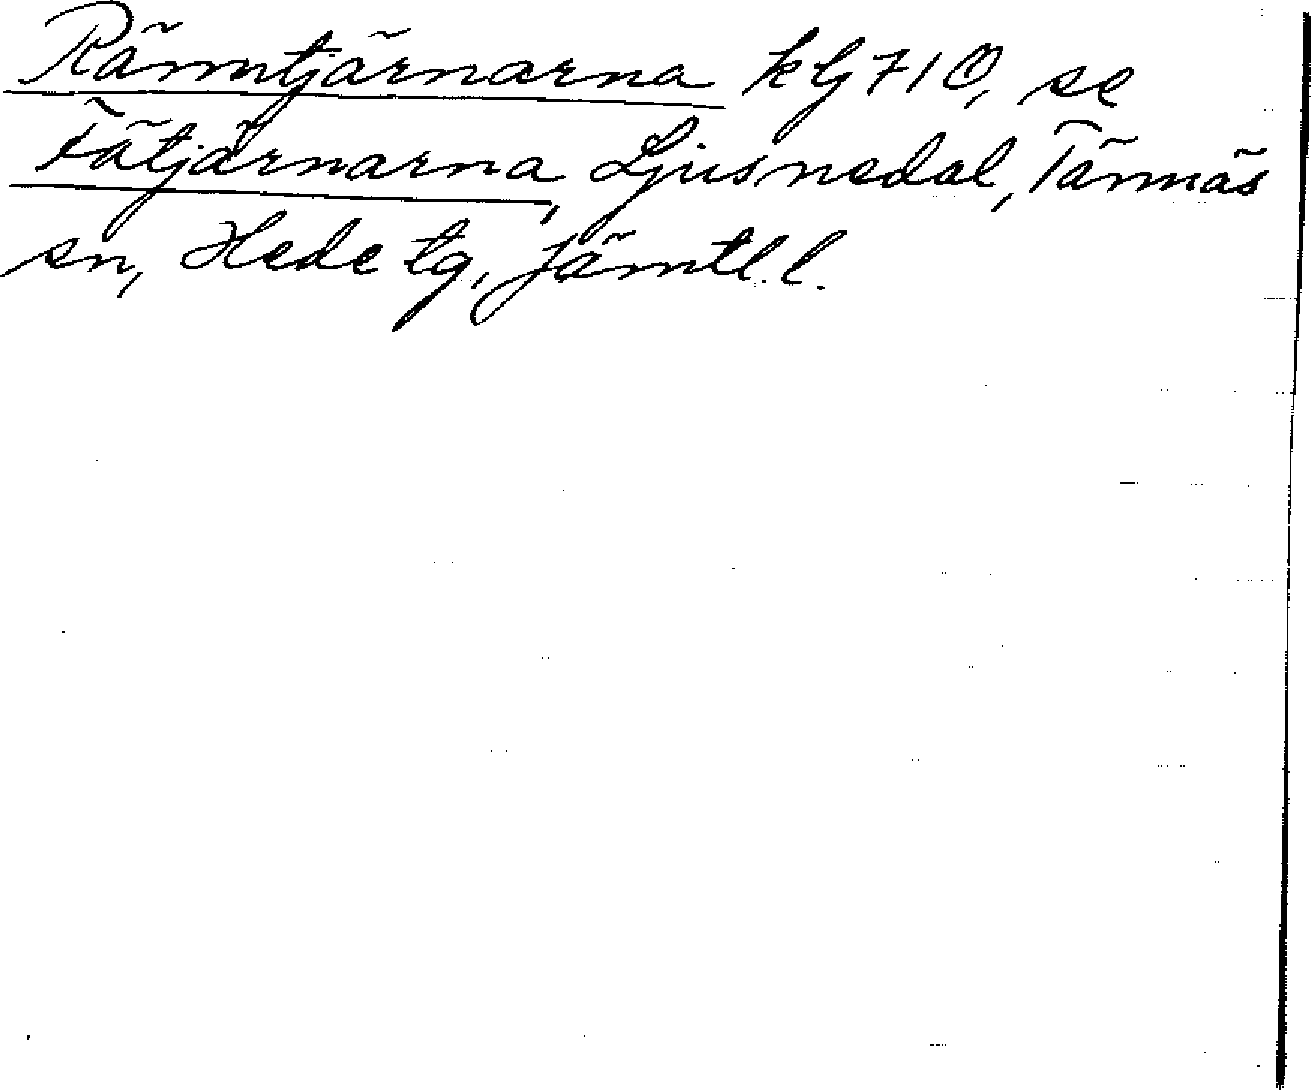 Ränntjärnarna kG 710, se
Fätjärnarna, Ljusnedal, Tännäs
sn, Hede tg, Jämtl. l.